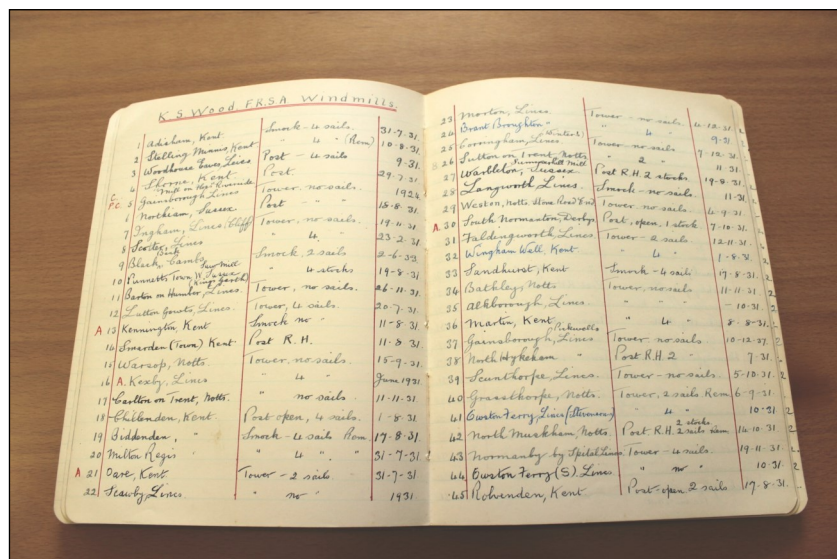 K S Wood F.R.S.A Windmills.
1 Adisham, Kent Smock - 4 sails. 31-7-31
2 Stelling Minnis, Kent " 4 " (Rem) 10-8-31.
3 Woodhouse Eaves, Leics Post - 4 sails 9-31.
4 Shorne, Kent Post. 29-7-31
5 Gainsboro Lincs Tower, no sails. 1924
6 Northiam, Sussex Post " 18-8-31.
7 Ingham, Lincs (Cliff) Tower, no sails. 19-11-31
8 Scotter, Lincs " 4. " 23-2-31
9 Black Cambs Smock, 2 sails 2-6-32
10 Punnetts Town, W. Sussex " 4 stocks 19-8-31
11 Barton on Humber, Lincs Tower, no sails. 26-11-31.
12 Lutton Gowts, Lincs. Tower, 4 sails. 20-7-31.
A 13 Kennington, Kent Smock no - 11-8-31
14 Smarden (Town) Kent Post R.H. 11-8-31
15 Warsop, Notts. Tower, no sails. 15-9-31.
16 A. Kexby, Lincs " 4 " June 1931
17 Carlton on Trent, Notts. " no sails. 11-11-31.
18 Chillenden, Kent. Post open, 4 sails. 1-8-31.
19 Biddenden, " Smock - 4 sails Rem. 17-8-31.
20 Milton Regis " 4 " " 31-7-31
A 21 Oare, Kent Tower - 2 sails 31-7-31.
22 Scawby, Lincs. " no " 1931.
23 Morton, Lincs Tower - no sails 4-12-31.
24 Brant Broughton " " 4 " 9-31
25 Corringham, Lincs Tower - no sails 9-12-31.
26 Sutton on Trent, Notts " 2 " 11-31.
27 Warbleton, Sussex Post R.H. 2 stocks 19-8-31.
28 Langworth Lincs. Smock - no sails. 11-31
29 Weston, Notts. Tower no sails 4-9-31.
A. 30 South Normanton, Derbys Post, open, 1 stock 7-10-31.
31 Faldingworth, Lincs Tower - 2 sails 12-11-31.
32 Wingham Well, Kent " 4 " 1-8-31.
33 Sandhurst, Kent Smock - 4 sails 17-8-31.
34 Bathley, Notts Tower, no sails. 11-11-31.
35 Alkborough, Lincs. " " " 10-31.
36 Martin, Kent " 4 " 8-8-31.
37 Gainsborough, Lincs Tower - no sails 10-12-37.
38 North Hykeham " Post R.H. 2 " 7-31.
39 Scunthorpe, Lincs. Tower - no sails. 5-10-31.
40 Grassthorpe, Notts. Tower, 2 sails Rem. 6-9-31.
41 Owston Ferry, Lincs " 4. " 10-31
42 North Muskham, Notts. Post R.H. 2 stocks 2 sails Rem. 14-10-31.
43 Normanby by Spital Lincs. Tower - 4 sails. 19-11-31.
44 Owston Ferry (S) Lincs. " no " 10.31
45 Rolvenden, Kent Post - open, 2 sails 17-8-31.